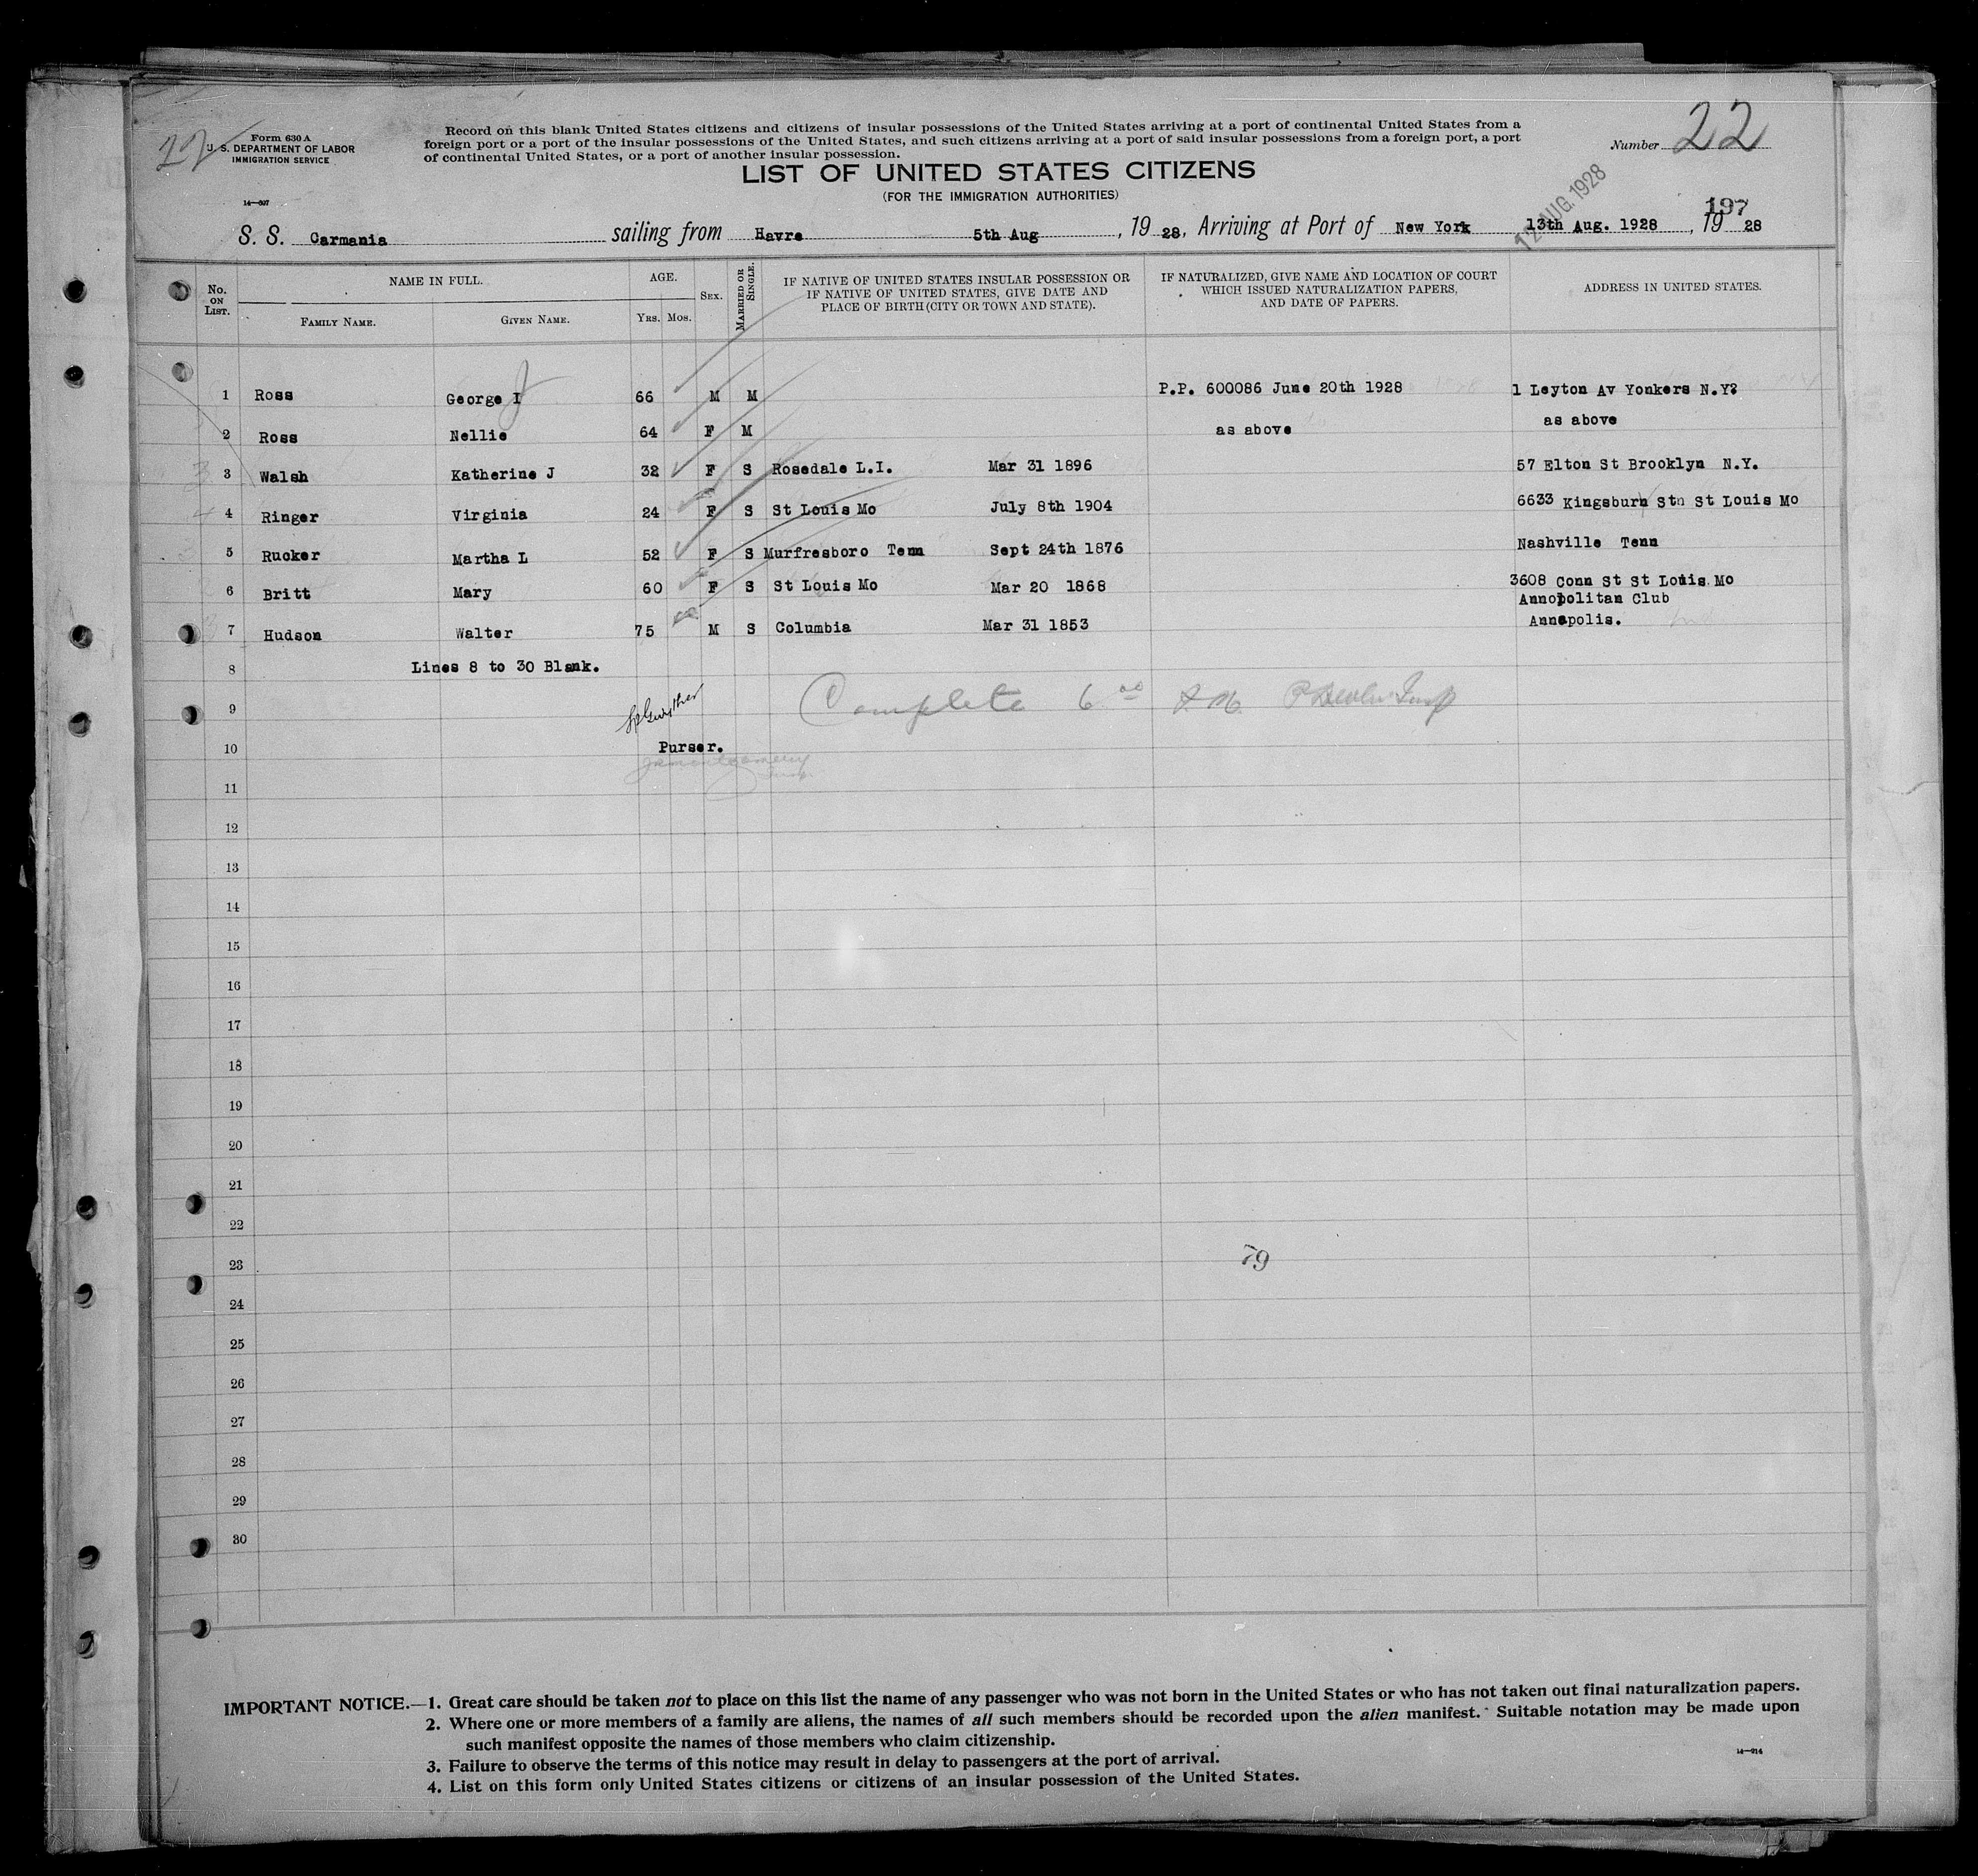 22
Form 630 A
U. S. DEPARTMENT OF LABOR
IMMIGRATION SERVICE
14—507
Record on this blank United States citizens and citizens of insular possessions of the United States arriving at a port of continental United States from a
foreign port or a port of the insular possessions of the United States, and such citizens arriving at a port of said insular possessions from a foreign port, a port
of continental United States, or a port of another insular possession.
Number 22
LIST OF UNITED STATES CITIZENS
(FOR THE IMMIGRATION AUTHORITIES)
12 AUG. 1928
197
S. S. Carmania sailing from Havre 5th Aug , 19 28, Arriving at Port of New York 13th Aug. 1928 , 19 28
No. ON LIST.
NAME IN FULL.
FAMILY NAME. GIVEN NAME.
AGE.
YRS. MOS.
SEX.
MARRIED OR SINGLE.
IF NATIVE OF UNITED STATES INSULAR POSSESSION OR
IF NATIVE OF UNITED STATES, GIVE DATE AND
PLACE OF BIRTH (CITY OR TOWN AND STATE).
IF NATURALIZED, GIVE NAME AND LOCATION OF COURT
WHICH ISSUED NATURALIZATION PAPERS,
AND DATE OF PAPERS.
ADDRESS IN UNITED STATES.
1 Ross George I J 66 M M P.P. 600086 June 20th 1928 1 Leyton Av Yonkers N.Y?
2 Ross Nellie 64 F M as above as above
3 Walsh Katherine J 32 F S Rosedale L.I. Mar 31 1896 57 Elton St Brooklyn N.Y.
4 Ringer Virginia 24 F S St Louis Mo July 8th 1904 6633 Kingsburn Stn St Louis Mo
5 Rucker Martha L 52 F S Murfresboro Tenn Sept 24th 1876 Nashville Tenn
6 Britt Mary 60 F S St Louis Mo Mar 20 1868 3608 Conn St St Louis Mo
Annopolitan Club
7 Hudson Walter 75 M S Columbia Mar 31 1853 Annapolis.
8 Lines 8 to 30 Blank.
9 Complete 6
10 Purser.
11
12
13
14
15
16
17
18
19
20
21
22
23 79
24
25
26
27
28
29
30
IMPORTANT NOTICE.—1. Great care should be taken not to place on this list the name of any passenger who was not born in the United States or who has not taken out final naturalization papers.
2. Where one or more members of a family are aliens, the names of all such members should be recorded upon the alien manifest. Suitable notation may be made upon
such manifest opposite the names of those members who claim citizenship.
3. Failure to observe the terms of this notice may result in delay to passengers at the port of arrival.
4. List on this form only United States citizens or citizens of an insular possession of the United States.
14—914